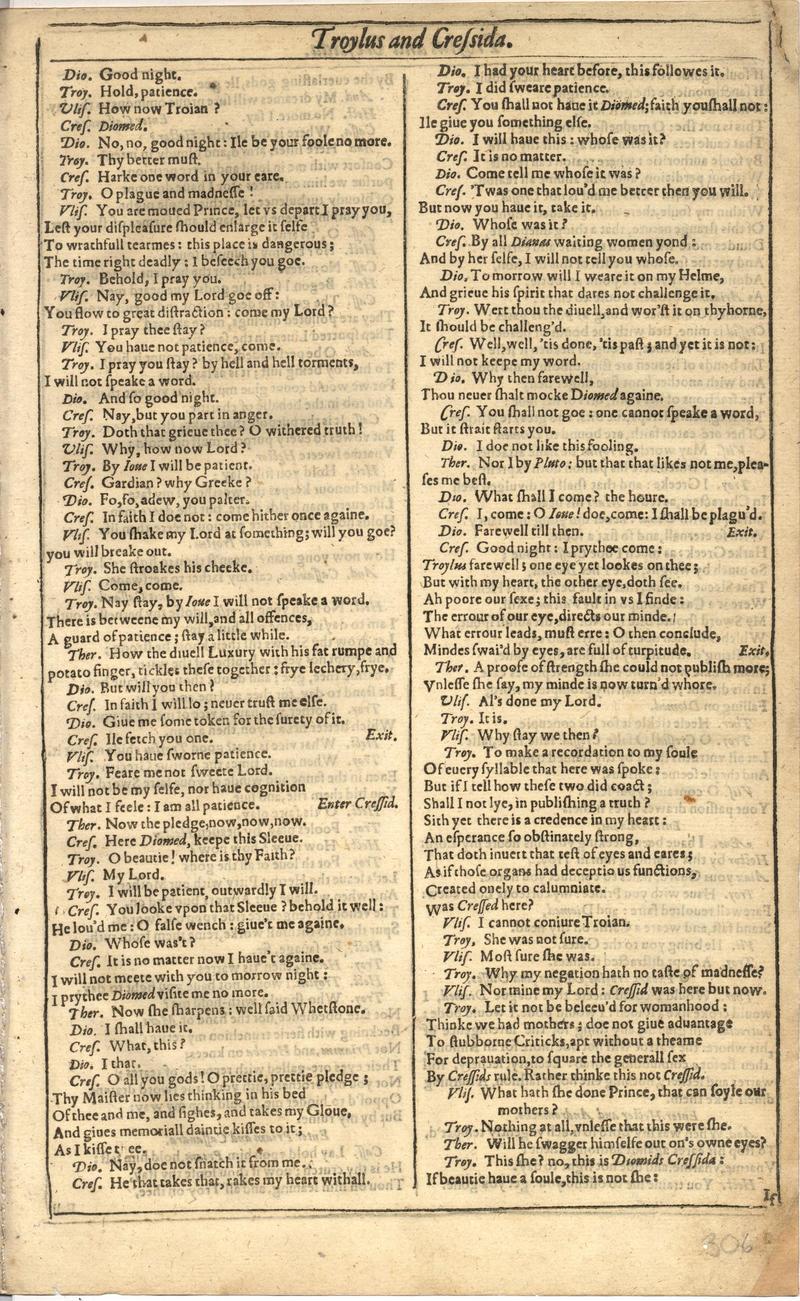 Troylus and Creſsida.
Dio. Good night.
Troy. Hold, patience.
Vliſ. How now Troian?
Creſ. Diomed.
Dio. No, no, good night: Ile be your foole no more.
Troy. Thy better muſt.
Creſ. Harke one word in your eare.
Troy. O plague and madneſſe!
Vliſ. You are moued Prince, let vs depart I pray you,
Leſt your diſpleaſure ſhould enlarge it ſelfe
To wrathfull tearmes: this place is dangerous;
The time right deadly: I beſeech you goe.
Troy. Behold, I pray you.
Vliſ. Nay, good my Lord goe off:
You flow to great diſtraction: come my Lord?
Troy. I pray thee ſtay?
Vliſ. You haue not patience, come.
Troy. I pray you ſtay? by hell and hell torments,
I will not ſpeake a word.
Dio. And ſo good night.
Creſ. Nay, but you part in anger.
Troy. Doth that grieue thee? O withered truth!
Vliſ. Why, how now Lord?
Troy. By Ioue I will be patient.
Creſ. Gardian? why Greeke?
Dio. Fo, fo, adew, you palter.
Creſ. In faith I doe not: come hither once againe.
Vliſ. You ſhake my Lord at ſomething; will you goe?
you will breake out.
Troy. She ſtroakes his cheeke.
Vliſ. Come, come.
Troy. Nay ſtay, by Ioue I will not ſpeake a word.
There is betweene my will, and all offences,
A guard of patience; ſtay a little while.
Ther. How the diuell Luxury with his fat rumpe and
potato finger, tickles theſe together: frye lechery, frye.
Dio. But will you then?
Creſ. In faith I will lo; neuer truſt me elſe.
Dio. Giue me ſome token for the ſurety of it.
Creſ. Ile fetch you one. Exit.
Vliſ. You haue ſworne patience.
Troy. Feare me not ſweete Lord.
I will not be my ſelfe, nor haue cognition
Of what I feele: I am all patience. Enter Creſſid.
Ther. Now the pledge, now, now, now.
Creſ. Here Diomed, keepe this Sleeue.
Troy. O beautie! where is thy Faith?
Vliſ. My Lord.
Troy. I will be patient, outwardly I will.
Creſ. You looke vpon that Sleeue? behold it well:
He lou'd me: O falſe wench: giue't me againe.
Dio. Whoſe was't?
Creſ. It is no matter now I haue't againe.
I will not meete with you to morrow night:
I prythee Diomed viſite me no more.
Ther. Now ſhe ſharpens: well ſaid Whetſtone.
Dio. I ſhall haue it.
Creſ. What, this?
Dio. I that.
Creſ. O all you gods! O prettie, prettie pledge;
Thy Maiſter now lies thinking in his bed
Of thee and me, and ſighes, and takes my Gloue,
And giues memoriall daintie kiſſes to it;
As I kiſſe thee.
Dio. Nay, doe not ſnatch it from me.
Creſ. He that takes that, takes my heart withall.
Dio. I had your heart before, this followes it.
Troy. I did ſweare patience.
Creſ. You ſhall not haue it Diomed; faith you ſhall not:
Ile giue you ſomething elſe.
Dio. I will haue this: whoſe was it?
Creſ. It is no matter.
Dio. Come tell me whoſe it was?
Creſ. 'Twas one that lou'd me better then you will.
But now you haue it, take it.
Dio. Whoſe was it?
Creſ. By all Dianas waiting women yond:
And by her ſelfe, I will not tell you whoſe.
Dio. To morrow will I weare it on my Helme,
And grieue his ſpirit that dares not challenge it.
Troy. Wert thou the diuell, and wor'ſt it on thy horne,
It ſhould be challeng'd.
Creſ. Well, well, 'tis done, 'tis paſt; and yet it is not:
I will not keepe my word.
Dio. Why then farewell,
Thou neuer ſhalt mocke Diomed againe.
Creſ. You ſhall not goe: one cannot ſpeake a word,
But it ſtrait ſtarts you.
Dio. I doe not like this fooling.
Ther. Nor I by Pluto: but that that likes not me, plea-
ſes me beſt.
Dio. What ſhall I come? the houre.
Creſ. I, come: O Ioue! doe, come: I ſhall be plagu'd.
Dio. Farewell till then. Exit.
Creſ. Good night: I prythee come:
Troylus farewell; one eye yet lookes on thee;
But with my heart, the other eye, doth ſee.
Ah poore our ſexe; this fault in vs I finde:
The errour of our eye, directs our minde.
What errour leads, muſt erre: O then conclude,
Mindes ſwai'd by eyes, are full of turpitude. Exit.
Ther. A proofe of ſtrength ſhe could not publiſh more;
Vnleſſe ſhe ſay, my minde is now turn'd whore.
Vliſ. Al's done my Lord.
Troy. It is.
Vliſ. Why ſtay we then?
Troy. To make a recordation to my ſoule
Of euery ſyllable that here was ſpoke:
But if I tell how theſe two did coact;
Shall I not lye, in publiſhing a truth?
Sith yet there is a credence in my heart:
An eſperance ſo obſtinately ſtrong,
That doth inuert that teſt of eyes and eares;
As if thoſe organs had deceptious functions,
Created onely to calumniate.
Was Creſſed here?
Vliſ. I cannot coniure Troian.
Troy. She was not ſure.
Vliſ. Moſt ſure ſhe was.
Troy. Why my negation hath no taſte of madneſſe?
Vliſ. Nor mine my Lord: Creſſid was here but now.
Troy. Let it not be beleeu'd for womanhood:
Thinke we had mothers; doe not giue aduantage
To ſtubborne Criticks, apt without a theame
For deprauation, to ſquare the generall ſex
By Creſſids rule. Rather thinke this not Creſſid.
Vliſ. What hath ſhe done Prince, that can ſoyle our
mothers?
Troy. Nothing at all, vnleſſe that this were ſhe.
Ther. Will he ſwagger himſelfe out on's owne eyes?
Troy. This ſhe? no, this is Diomids Creſſida:
If beautie haue a ſoule, this is not ſhe:
If
306